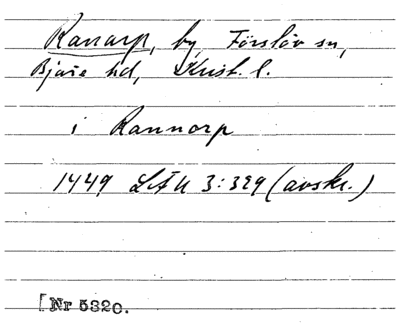 Ranarp, by, Förslöv sn,
Bjäre hd, Krist. l.
i Rannorp
1449 LÄU 3:329 (avskr.)
[Nr 5320.